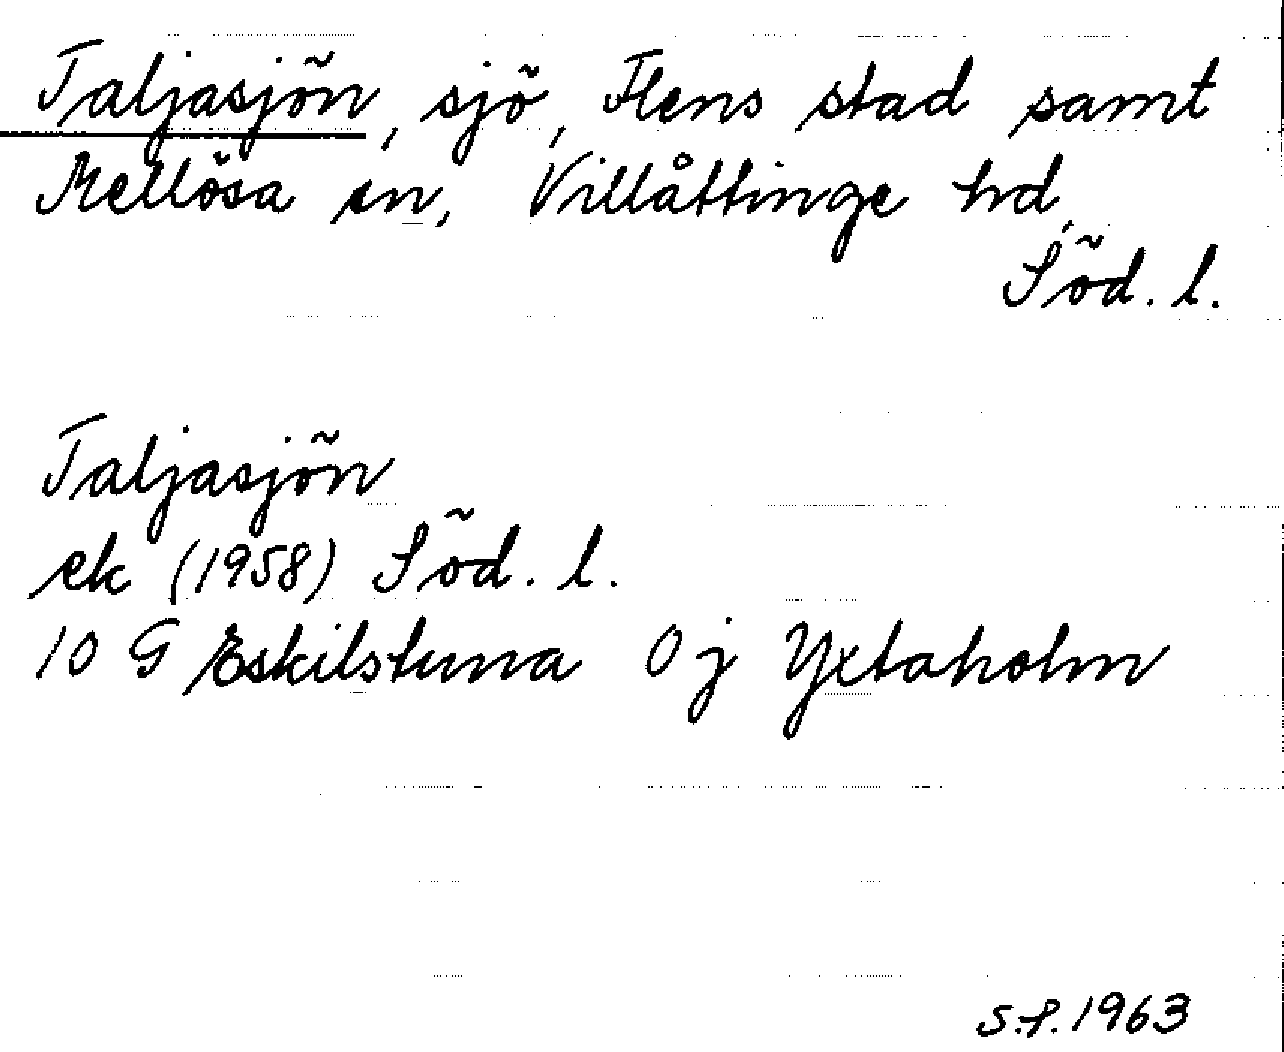 Taljasjön, sjö, Flens stad samt
Mellösa sn, Villåttinge hd,
Söd. l.
Taljasjön
ek (1958) Söd. l.
10 G Eskilstuna 0 j Yxtaholm
S.S. 1963